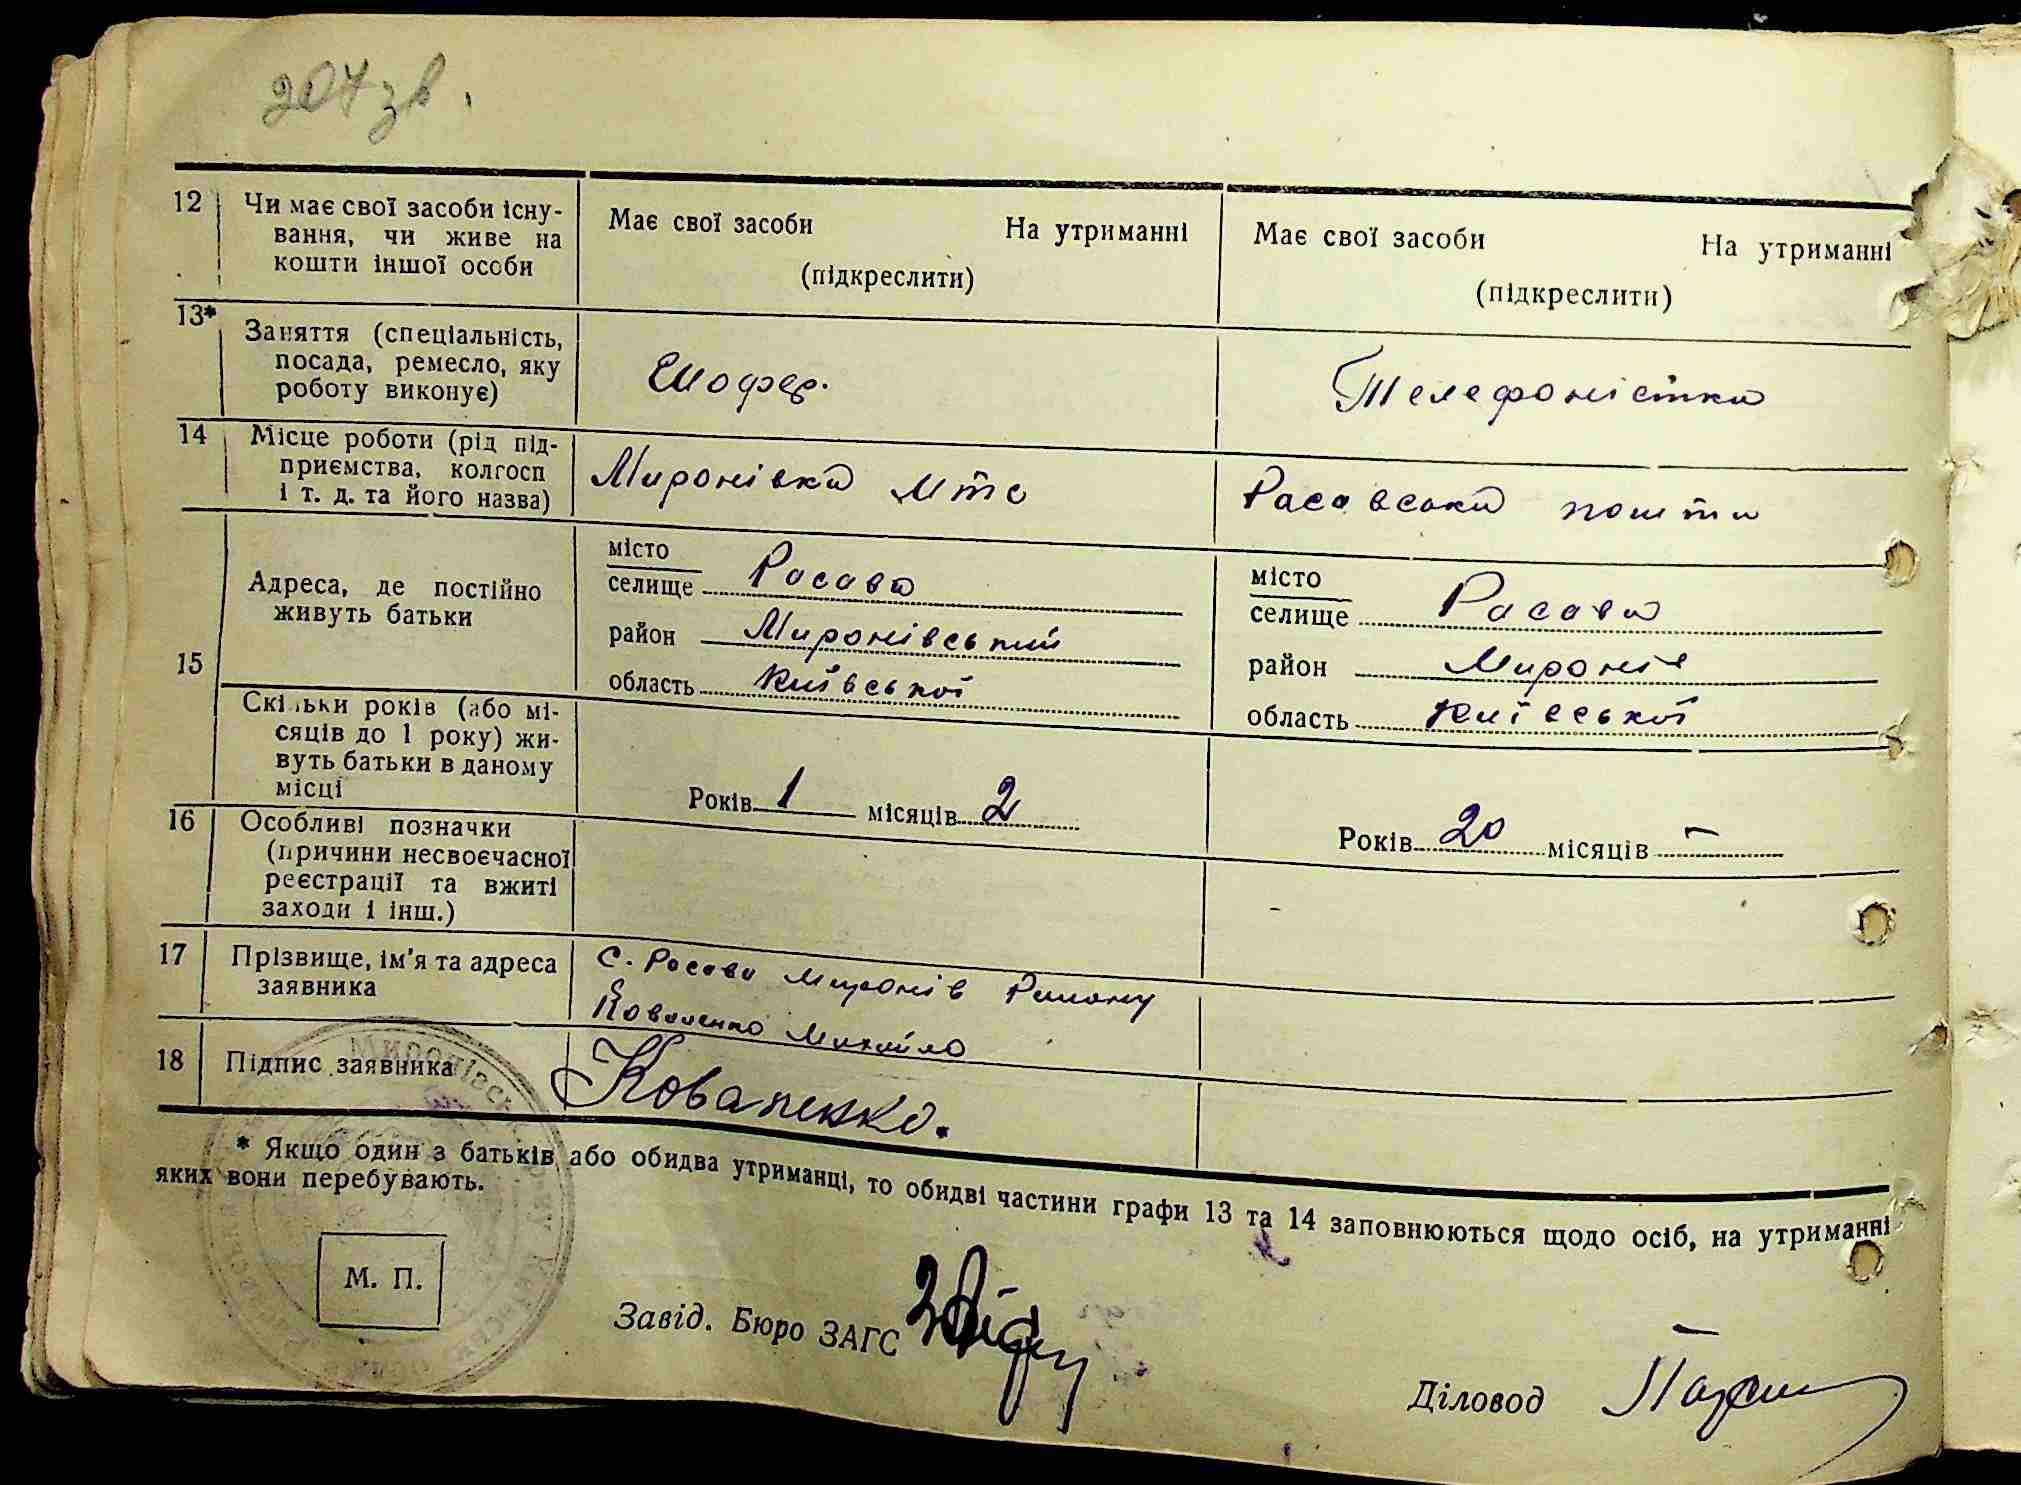 207 зв.
12 Чи має свої засоби існу-
вання, чи живе на
кошти іншої особи
Має свої засоби На утриманні
(підкреслити)
Має свої засоби На утриманні
(підкреслити)
13* Заняття (спеціальність,
посада, ремесло, яку
роботу виконує)
Шофер.
Телефоністка
14 Місце роботи (рід під-
приємства, колгосп
і т. д. та його назва)
Миронівка мтс
Расавська пошта
15 Адреса, де постійно
живуть батьки
місто
селище Расава
район Миронівський
область Київської
місто
селище Расава
район Миронів
область Київської
Скільки років (або мі-
сяців до 1 року) жи-
вуть батьки в даному
місці
Років 1 місяців 2
Років 20 місяців –
16 Особливі позначки
(причини несвоєчасної
реєстрації та вжиті
заходи і інш.)
17 Прізвище, ім'я та адреса
заявника
с. Расава Миронів Району
Коваленко Михайло
18 Підпис заявника
Коваленко.
* Якщо один з батьків або обидва утриманці, то обидві частини графи 13 та 14 заповнюються щодо осіб, на утриманні
яких вони перебувають.
М. П.
Завід. Бюро ЗАГС
Діловод